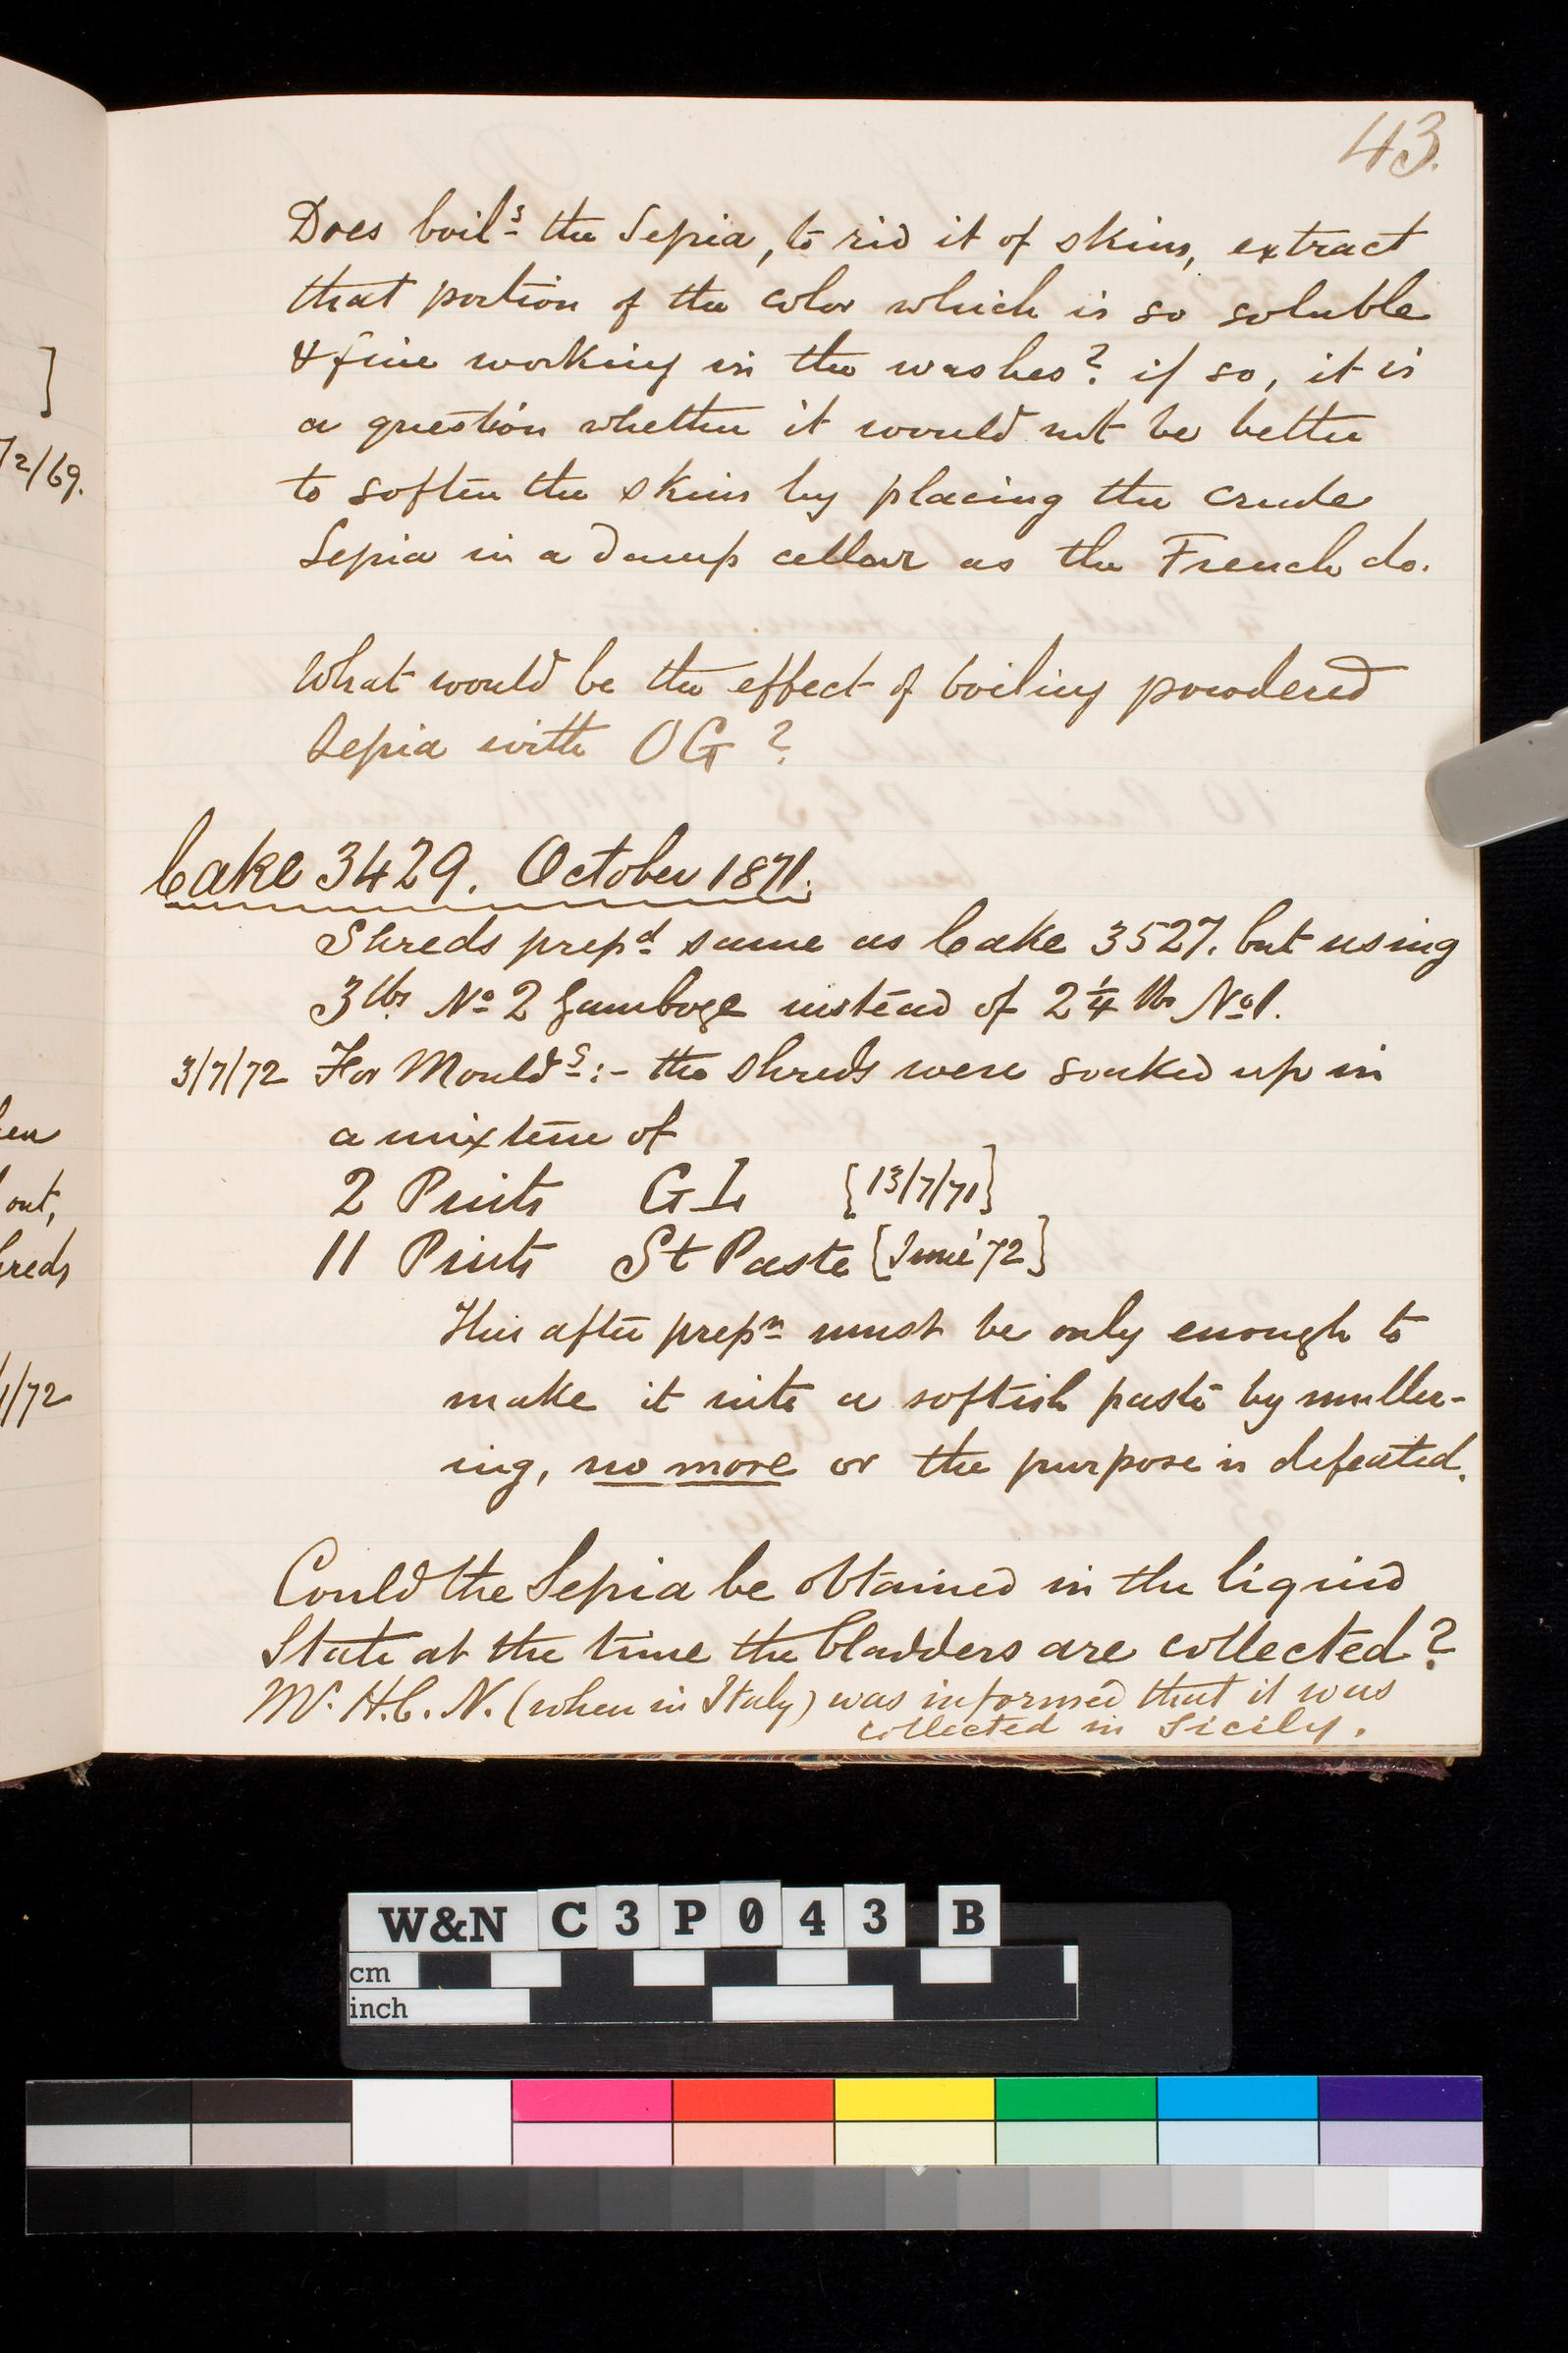 43.
Does boilg the Sepia, to rid it of skins, extract
that portion of the color which is so soluble
& fine working in the washes? if so, it is
a question whether it would not be better
to soften the skins by placing the crude
Sepia in a damp cellar as the French do.
What would be the effect of boiling powdered
Sepia with OG?
Cake 3429. October 1871.
Shreds prepd same as Cake 3527. but using
3 lbs No 2 Gamboge instead of 2 1/4 lbs No 1.
3/7/72 For Mouldg :- the shreds were soaked up in
a mixture of
2 Pints GL {13/7/71}
11 Pints St Paste {June '72}
This after prepn must be only enough to
make it into a softish paste by muller-
ing, no more or the purpose is defeated.
Could the Sepia be obtained in the liquid
State at the time the bladders are collected?
Mr. H.C.N. (when in Italy) was informed that it was
collected in Sicily.
]
2/69.
out,
1/72
W&N C3P043 B
cm
inch